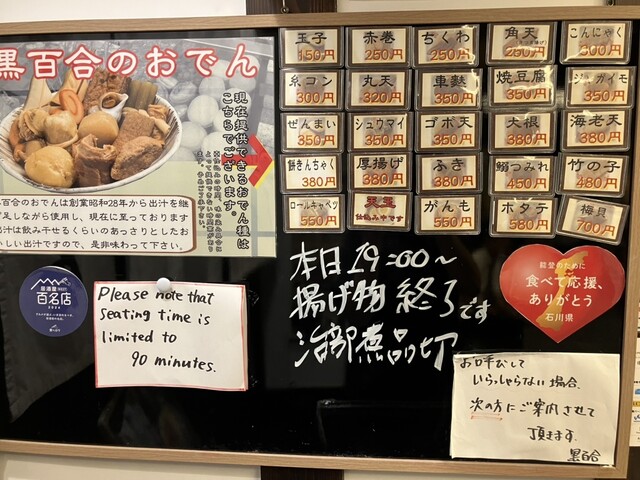 黒百合のおでん
現在提供できるおでん種は
こちらでございます。
百合のおでんは創業昭和28年から出汁を継
足しながら使用し、現在に至っております
出汁は飲み干せるくらいのあっさりとしたお
いしい出汁ですので、是非味わって下さい。
玉子 150円
赤巻 250円
ちくわ 250円
角天 250円
こんにゃく 300円
糸コン 300円
丸天 320円
車麩 350円
焼豆腐 350円
ジャガイモ 350円
ぜんまい 350円
シュウマイ 350円
ゴボ天 350円
大根 380円
海老天 380円
餅きんちゃく 380円
厚揚げ 380円
ふき 380円
鰯つみれ 450円
竹の子 480円
ロールキャベツ 550円
天玉 仕込み中です
がんも 560円
ホタテ 580円
梅貝 700円
本日19:00〜
揚げ物 終了です
治部煮品切
居酒屋
百名店
Please note that
seating time is
limited to
90 minutes.
能登のために
食べて応援、
ありがとう
石川県
お呼びして
いらっしゃらない場合
次の方にご案内させて
頂きます.
黒百合